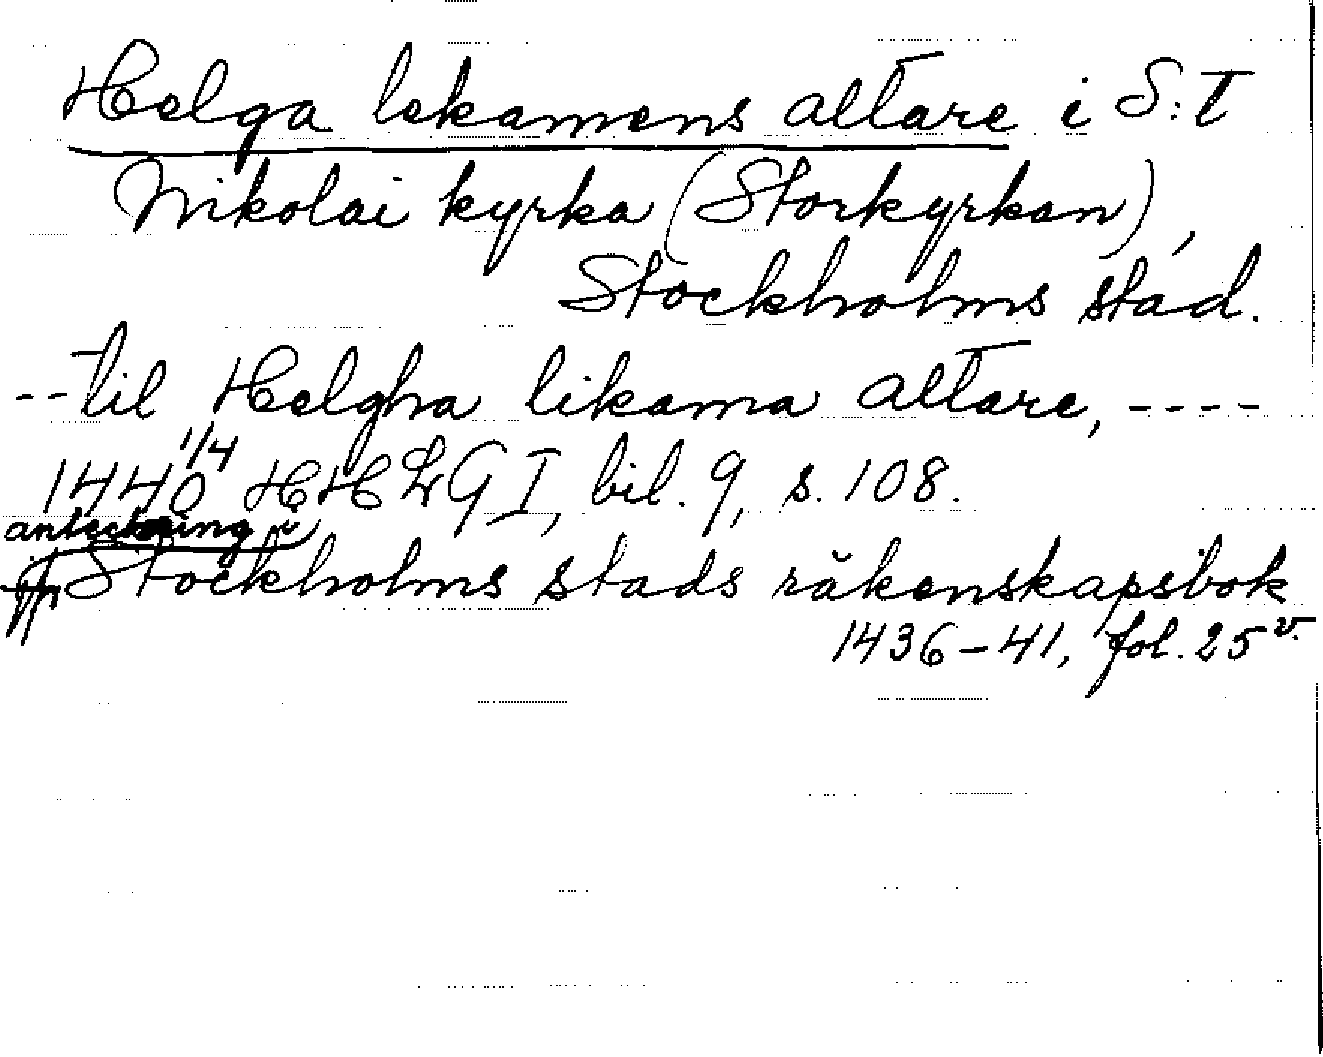 Helga lekamens altare i S:t
Nikolai kyrka (Storkyrkan),
Stockholms stad.
--til Helgha likama altare, ----
1440 1/4 HHLG I, bil. 9, s. 108.
anteckning i
Stockholms stads räkenskapsbok
1436-41, fol. 25 v.